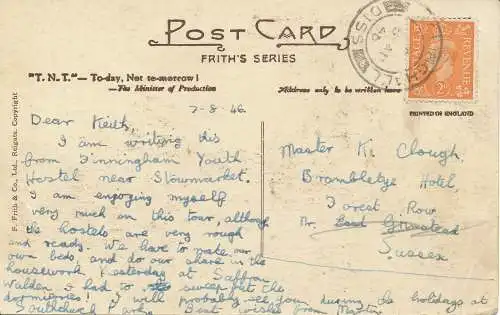 POST CARD
FRITH'S SERIES
"T.N.T."—To-day, Not to-morrow!
—The Minister of Production
Address only to be written here
POSTAGE REVENUE
2D
DISS
PRINTED IN ENGLAND
F. Frith & Co., Ltd., Reigate. Copyright
7-8-46
Dear Keith,
I am writing this
from Finningham Youth
Hostel near Stowmarket.
I am enjoying myself
very much on this tour, although
the hostels are very rough
and ready. We have to make our
own beds, and do our share in the
housework. Yesterday at Saffron
Walden I had to sweep out the
dormitories! I will probably see you during the holidays at
Southchurch Park. Best wishes from Martin
Master K. Clough,
Brambletye Hotel,
Forest Row
Nr. East Grinstead
Sussex